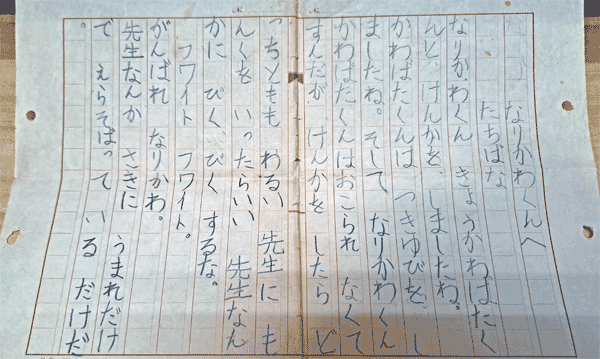 なりかわくんへ
たちばな
なりかわくん きょうかわばたく
んと、けんかを、しましたね。
かわばたくんは つきゆびを、し
ましたね。そして なりかわくん
かわばたくんはおこられ なくて
すんだが、けんかを したら ど
っちももわるい 先生に も
んくを いったらいい 先生なん
かに びく、びく するな。
フワイト フワイト。
がんばれ なりかわ。
先生なんか さきに うまれだけ
で えらそばって いる だけだ
。